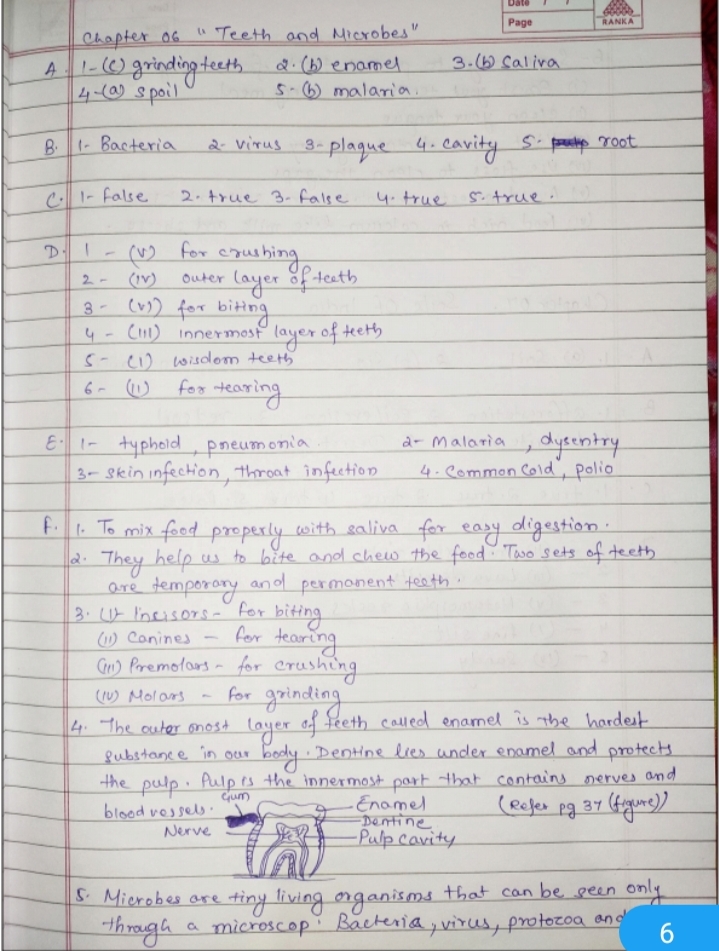 Date / /
Page
RANKA
Chapter 06 " Teeth and Microbes"
A. 1-(c) grinding teeth 2. (b) enamel 3.(b) Saliva
4-(a) spoil 5-(b) malaria.
B. 1- Bacteria 2- virus 3- plaque 4. cavity 5. root
C. 1- false 2. true 3- false 4. true 5. true.
D. 1 - (v) for crushing
2 - (iv) outer layer of teeth
3 - (vi) for biting
4 - (iii) innermost layer of teeth
5 - (i) wisdom teeth
6 - (ii) for tearing
E. 1- typhoid, pneumonia. 2- Malaria, dysentry
3- skin infection, throat infection 4. Common Cold, polio
F. 1. To mix food properly with saliva for easy digestion.
2. They help us to bite and chew the food. Two sets of teeth
are temporary and permanent teeth.
3. (i) Incisors - for biting
(ii) Canines - for tearing
(iii) Premolars - for crushing
(iv) Molars - for grinding
4. The outer most layer of teeth called enamel is the hardest
substance in our body. Dentine lies under enamel and protects
the pulp. Pulp is the innermost part that contains nerves and
blood vessels. Gum Enamel (Refer pg 37 (figure))
Nerve Dentine
Pulp cavity
5. Microbes are tiny living organisms that can be seen only
through a microscop. Bacteria, virus, protozoa and
6